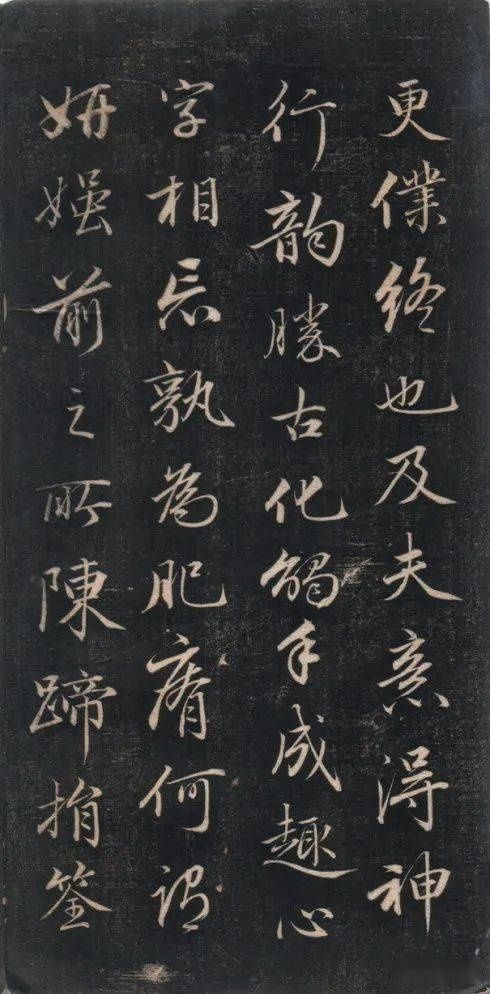 更僕終也及夫意得神
行韵勝古化觸手成趣心
字相忘孰為肥瘠何謂
妍媸前之所陳蹄捐筌